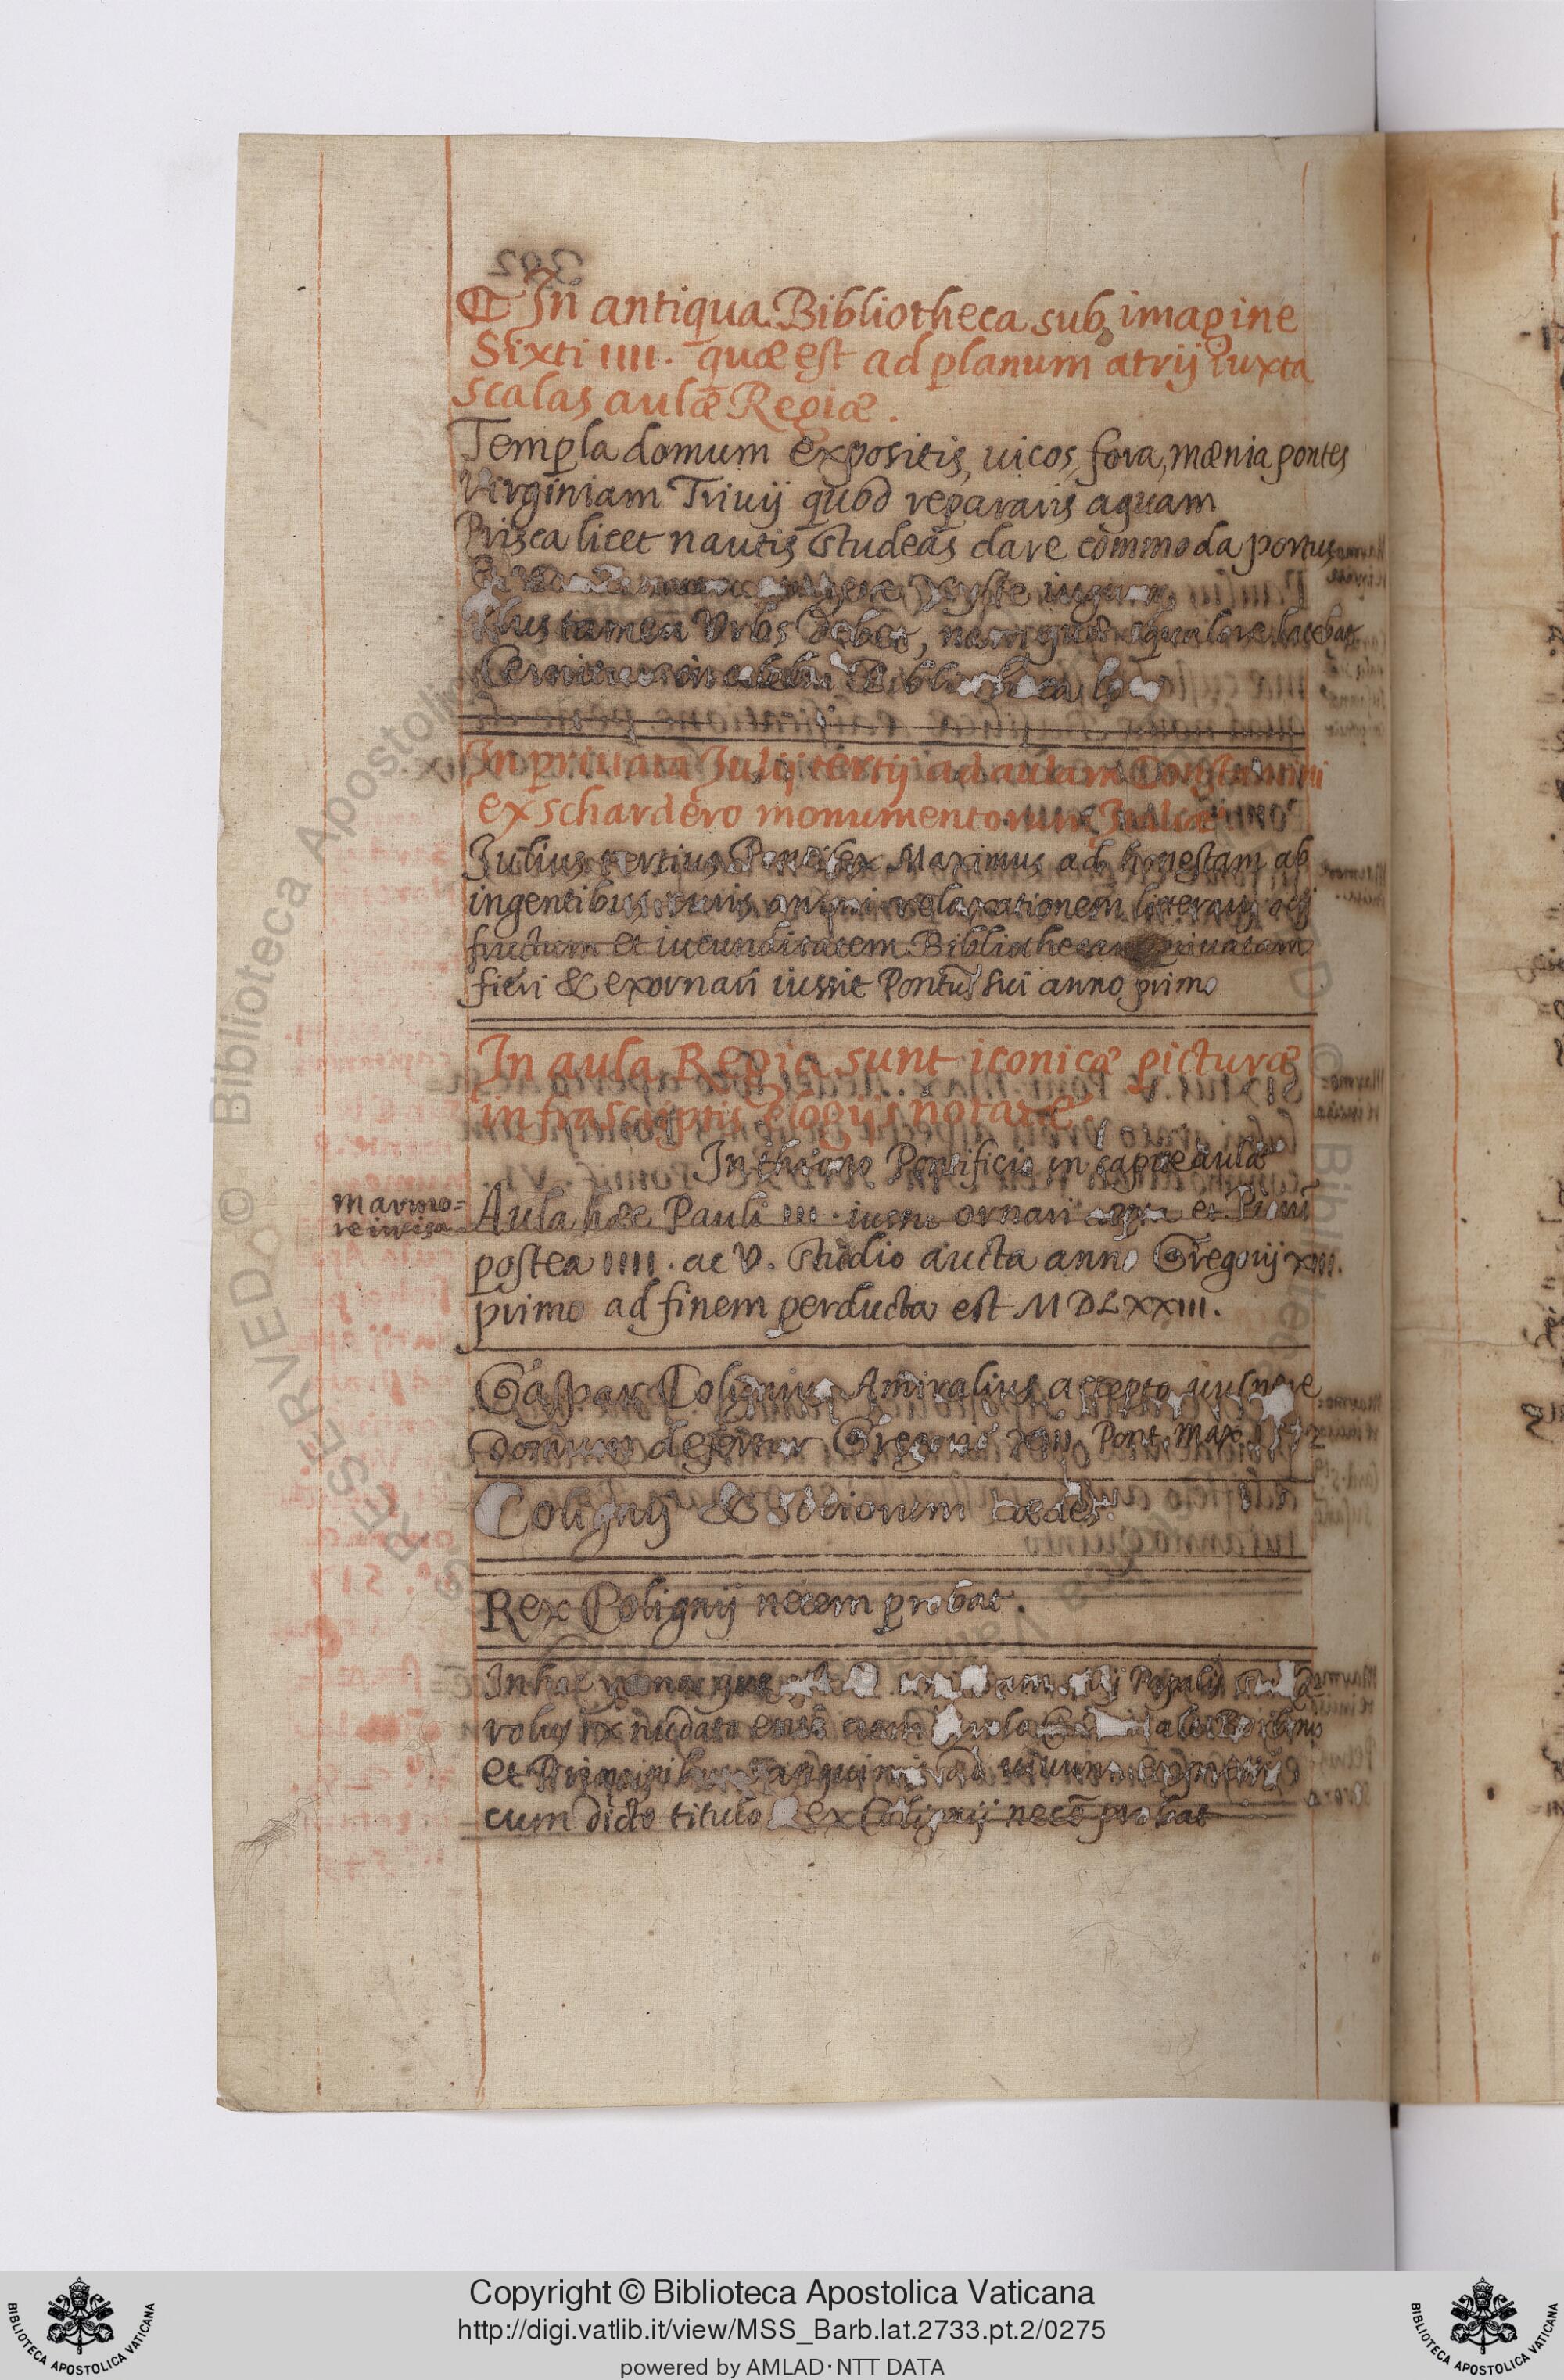 In antiqua Bibliotheca sub imagine
Sixti IIII. quæ est ad planum atrij iuxta
scalas aulæ Regiæ.
Templa domum expositis, uicos, fora, mænia pontes
Virginiam Triuij quod repararis aquam
Prisca licet nautis studeas dare commoda portus
iugum
Plus tamen Vrbs debet, nam quæ squalore latebat
Cernitur in celebri Bibliotheca loco
In priuata Iulij tertij ad aulam Constantini
ex schardero monumentorum Italiæ
Iulius tertius Pontifex Maximus ad honestam ab
ingentibus curis animi relaxationem
fructum et iucunditatem Bibliothecam priuatam
fieri & exornari iussit Pontus sui anno primo
In aula Regia sunt iconicæ picturæ
infrascriptis elogijs notatæ
In throno Pontificio in capite aulæ
Marmo=
re incisa
Aula hæc Pauli III. iussu ornari cepta et Pii
postea IIII. ac V. studio aucta anno Gregorij XIII.
primo ad finem perducta est MDLXXIII.
Gaspar Colignius Amiralius accepto uulnere
domum defertur Gregorio XIII. Pont. Max.
Colignij & sociorum cædes.
Rex Colignij necem probat.
In hac
rolus IX nudato ense
et Principibus sanguinis ad uiuum
cum dicto titulo Rex Colignij necē probat
RESERVED © Biblioteca Apostolica Vaticana
Copyright © Biblioteca Apostolica Vaticana
http://digi.vatlib.it/view/MSS_Barb.lat.2733.pt.2/0275
powered by AMLAD·NTT DATA
BIBLIOTECA APOSTOLICA VATICANA
BIBLIOTECA APOSTOLICA VATICANA